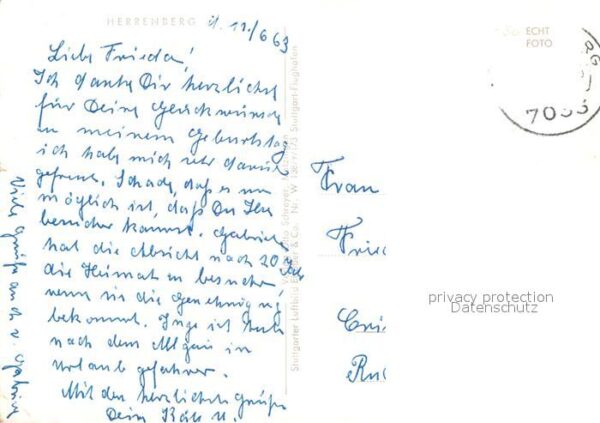 HERRENBERG
d. 11./6 63
Liebe Frieda!
Ich danke Dir herzlichst
für Deine Glückwünsche
zu meinem Geburtstag
ich habe mich sehr darüber
gefreut. Schade, daß es nun
möglich ist, daß Du
besuchen kannst. Gabriele
hat die Absicht nach 20 Jah
die Heimat zu besuchen,
wenn sie die Genehmigung
bekommt. Inge ist heute
nach dem Allgäu in
Urlaub gefahren.
Mit den herzlichsten Grüßen
Deine u.
Viele Grüße auch v. Gabriele
Stuttgart-Flughafen
ECHT
FOTO
Frau
Frie
privacy protection
Datenschutz